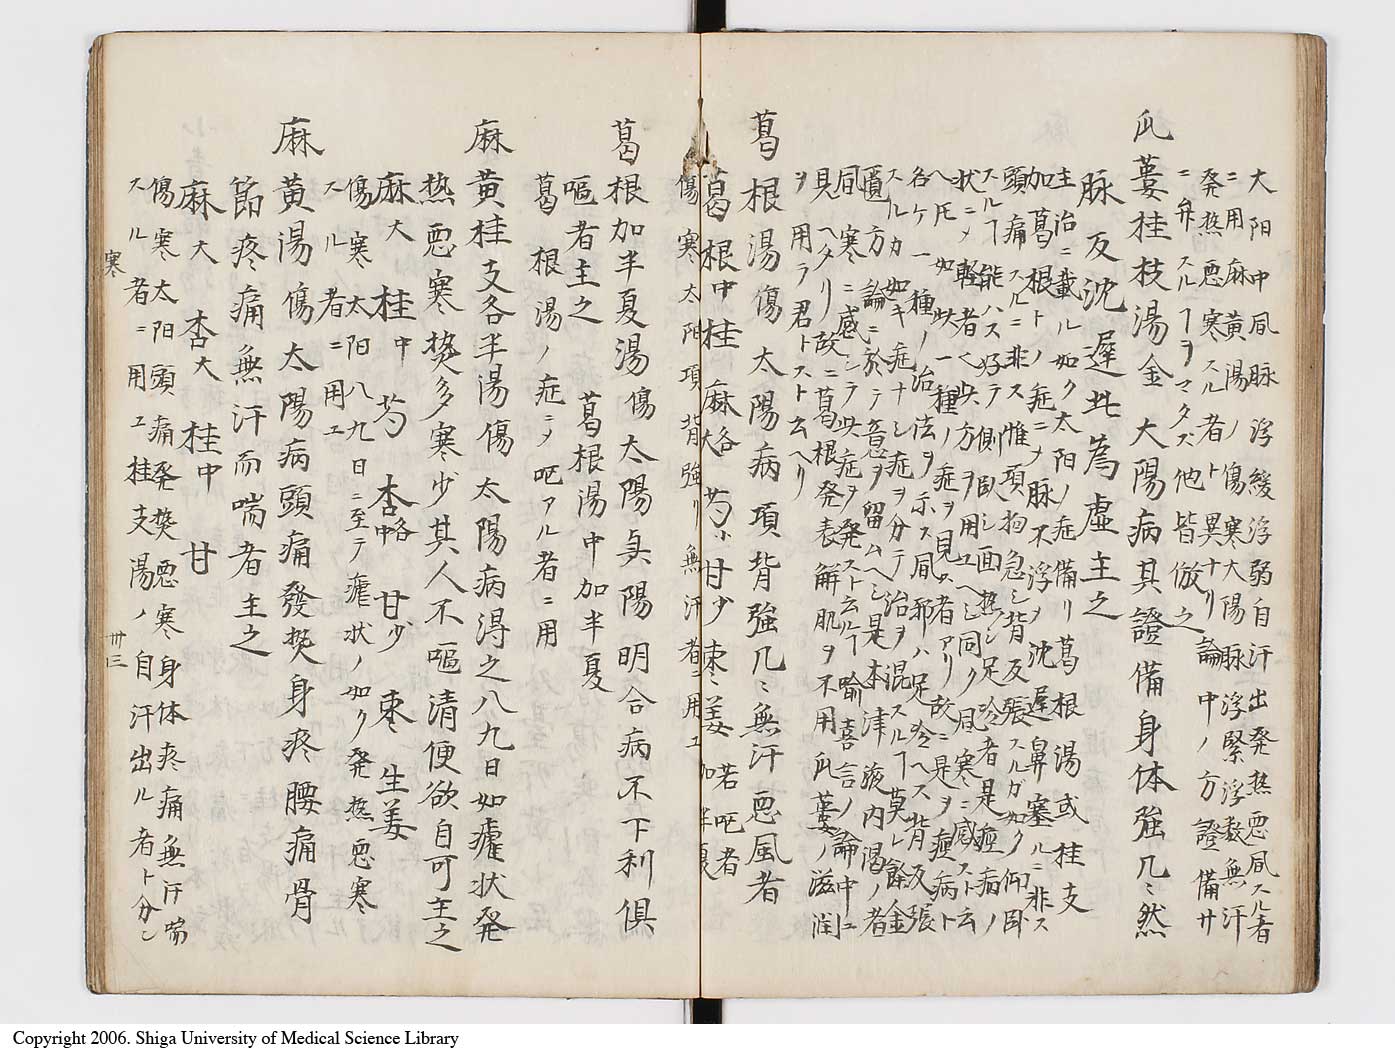 大阳中凮脉浮緩浮弱自汗出発热悪凮スル者
ニ用麻黄湯ノ傷寒大陽脉浮緊浮数無汗
発热悪寒スル者ト異ナリ論中ノ方證備サ
ニ弁スルヿヲマタズ他皆倣之
瓜蔞桂枝湯金大陽病其證備身体強几〻然
脉反沈遲此為虚主之
主治ニ載ル如ク太阳ノ症備リ葛根湯或桂支
加葛根トノ症ニメ脉不浮ヲ沈遲鼻塞ルニ非ス
頭痛スルニ非ス惟項拘急シ背反張スルガ如ク仰卧
スルヿ能ハス好テ側卧シ面热シ足冷者是痙病ノ
状ニメ軽者く此方ヲ用ユヘシ同ク凮寒ニ感スト云
ヘ𪜈如此一種ノ症ヲ見ス者アリ故ニ是ヲ痙病ト
名ケ一種ノ治法ヲ示ス凮邪ハ足冷ヘス背反張
スルカ如キ症ナシ症ヲ分テ治ヲ混スルヿ莫レ餘金
匱方論ニ於テ意ヲ留ムヘシ是本津液内渇ノ者
凮寒ニ感シテ此症ヲ発スト云ルヿ喻嘉言ノ論中ニ
見ヘタリ故ニ葛根発表解肌ヲ不用瓜蔞ノ滋潤
ヲ用ラ君トスト云ヘリ
葛根湯傷太陽病項背強几〻無汗悪風者
葛根中桂麻各大芍小甘少棗〻姜若呕者加半夏
傷寒太阳項背強リ無汗者ニ用ユ
葛根加半夏湯傷太陽與陽明合病不下利俱
嘔者主之葛根湯中加半夏
葛根湯ノ症ニメ呕アル者ニ用
麻黄桂支各半湯傷太陽病得之八九日如瘧状発
热悪寒热多寒少其人不嘔清便欲自可主之
麻大桂中芍杏略中甘少棗生姜
傷寒太阳八九日ニ至テ瘧状ノ如ク発热悪寒
スル者ニ用ユ
麻黄湯傷太陽病頭痛發热身疼腰痛骨
節疼痛無汗而喘者主之
麻大杏大桂中甘
傷寒太阳頭痛発热悪寒身体疼痛無汗喘
スル者ニ用ユ桂支湯ノ自汗出ル者ト分シ
寒
卅三
Copyright 2006. Shiga University of Medical Science Library